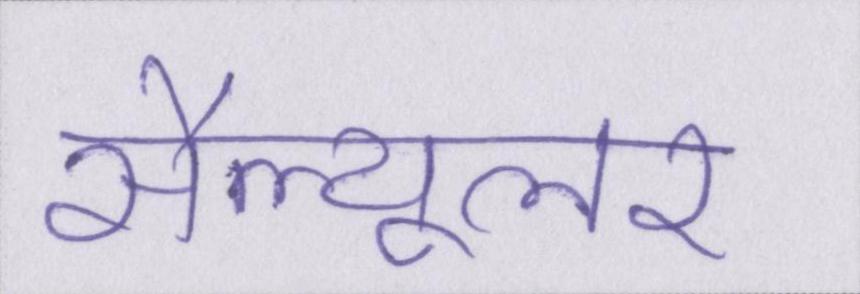 सैल्यूलर